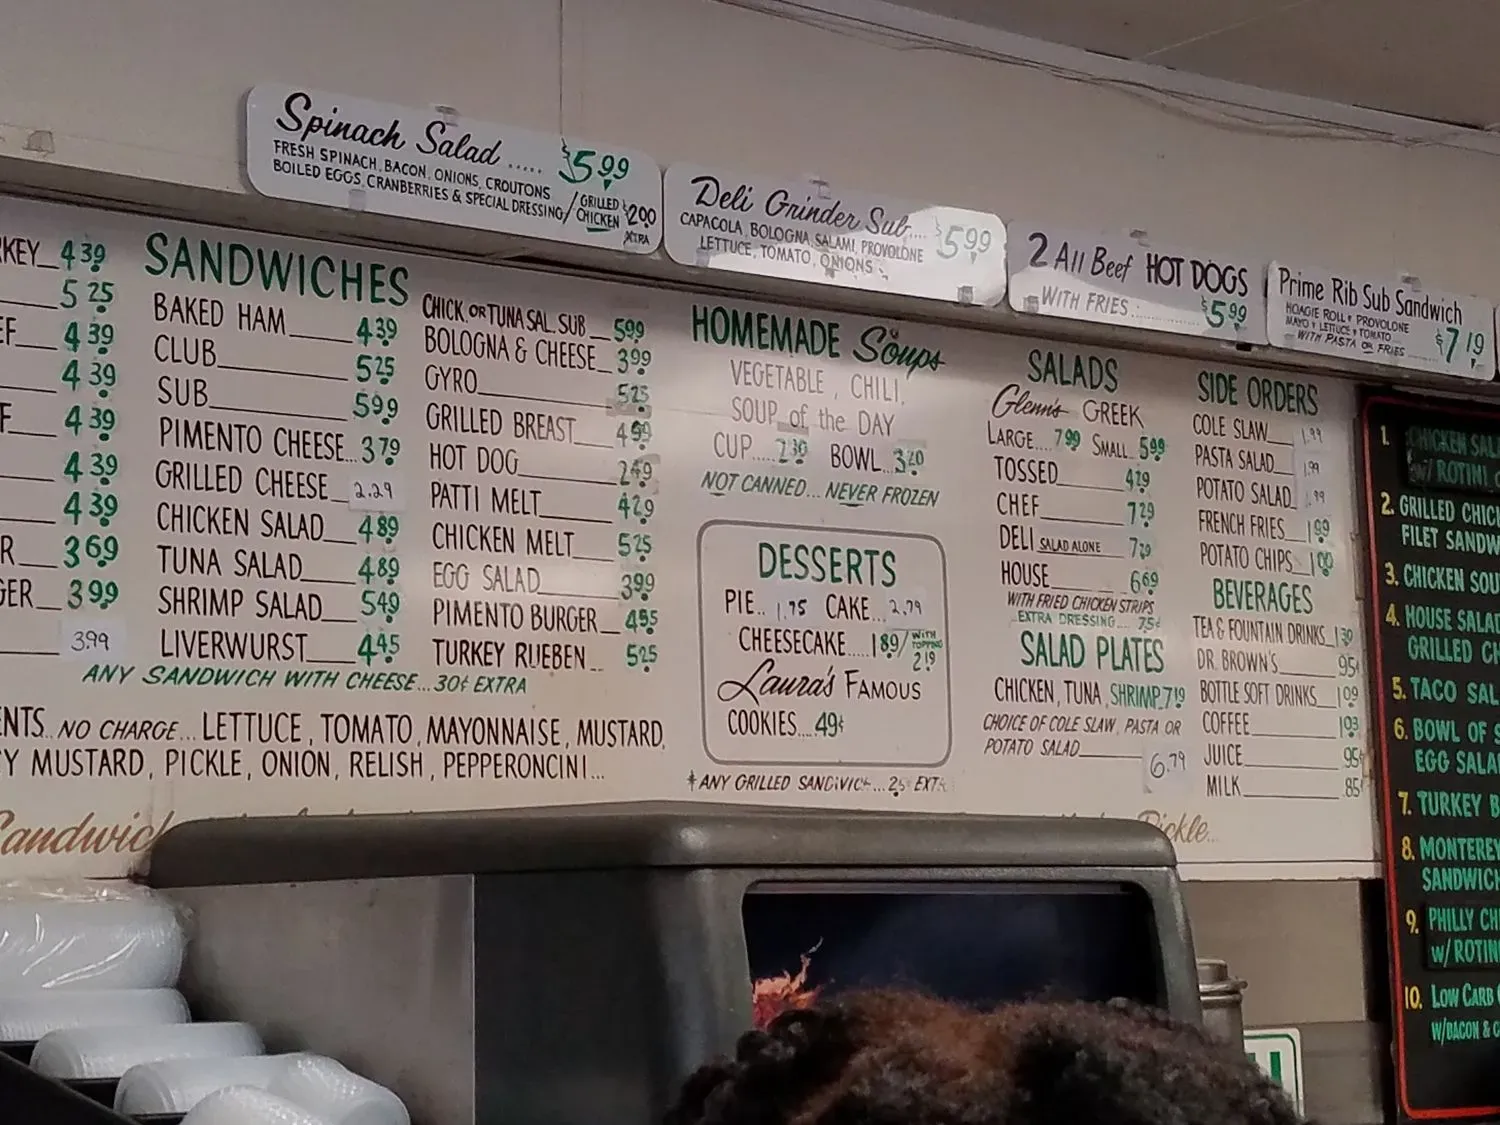 Spinach Salad ..... $5.99
FRESH SPINACH, BACON, ONIONS, CROUTONS
BOILED EGGS, CRANBERRIES & SPECIAL DRESSING / GRILLED CHICKEN $2.00 XTRA
Deli Grinder Sub.... $5.99
CAPACOLA, BOLOGNA, SALAMI, PROVOLONE
LETTUCE, TOMATO, ONIONS
2 All Beef HOT DOGS
WITH FRIES $5.99
Prime Rib Sub Sandwich
HOAGIE ROLL PROVOLONE
MAYO LETTUCE TOMATO
WITH PASTA OR FRIES $7.19
RKEY 4.39
5.25
EF 4.39
4.39
F 4.39
4.39
4.39
R 3.69
GER 3.99
3.99
SANDWICHES
BAKED HAM 4.39
CLUB 5.25
SUB 5.99
PIMENTO CHEESE... 3.79
GRILLED CHEESE 2.29
CHICKEN SALAD 4.89
TUNA SALAD 4.89
SHRIMP SALAD 5.49
LIVERWURST 4.45
CHICK. OR TUNA SAL. SUB 5.99
BOLOGNA & CHEESE 3.99
GYRO 5.25
GRILLED BREAST 4.99
HOT DOG 2.49
PATTI MELT 4.29
CHICKEN MELT 5.25
EGG SALAD 3.99
PIMENTO BURGER 4.95
TURKEY RUEBEN 5.25
ANY SANDWICH WITH CHEESE...30¢ EXTRA
ENTS.. NO CHARGE... LETTUCE, TOMATO, MAYONNAISE, MUSTARD,
Y MUSTARD, PICKLE, ONION, RELISH, PEPPERONCINI...
Sandwich
Pickle...
HOMEMADE Soups
VEGETABLE, CHILI,
SOUP of the DAY
CUP... 2.30 BOWL... 3.20
NOT CANNED... NEVER FROZEN
DESSERTS
PIE.. 1.75 CAKE... 2.79
CHEESECAKE.... 1.89 / WITH TOPPING 2.19
Laura's FAMOUS
COOKIES.... 49¢
*ANY GRILLED SANDWICH...25 EXTRA
SALADS
Glenn's GREEK
LARGE... 7.99 SMALL.. 5.99
TOSSED 4.29
CHEF 7.29
DELI SALAD ALONE 7.29
HOUSE 6.69
WITH FRIED CHICKEN STRIPS
EXTRA DRESSING.... 75¢
SALAD PLATES
CHICKEN, TUNA, SHRIMP 7.19
CHOICE OF COLE SLAW, PASTA OR
POTATO SALAD 6.79
SIDE ORDERS
COLE SLAW 1.99
PASTA SALAD 1.99
POTATO SALAD .99
FRENCH FRIES 1.89
POTATO CHIPS 1.09
BEVERAGES
TEA & FOUNTAIN DRINKS 1.39
DR. BROWN'S 95¢
BOTTLE SOFT DRINKS 1.09
COFFEE 1.03
JUICE 95¢
MILK .85¢
1. CHICKEN SAL
w/ ROTINI
2. GRILLED CHIC
FILET SANDW
3. CHICKEN SOU
4. HOUSE SALAD
GRILLED CH
5. TACO SAL
6. BOWL OF S
EGG SALA
7. TURKEY B
8. MONTEREY
SANDWICH
9. PHILLY CH
w/ ROTIN
10. LOW CARB
W/BACON & C